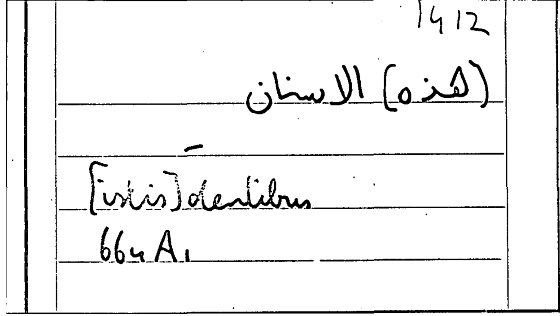 1412
(هذه) الاسنان
[istis] dentibus
664 A,